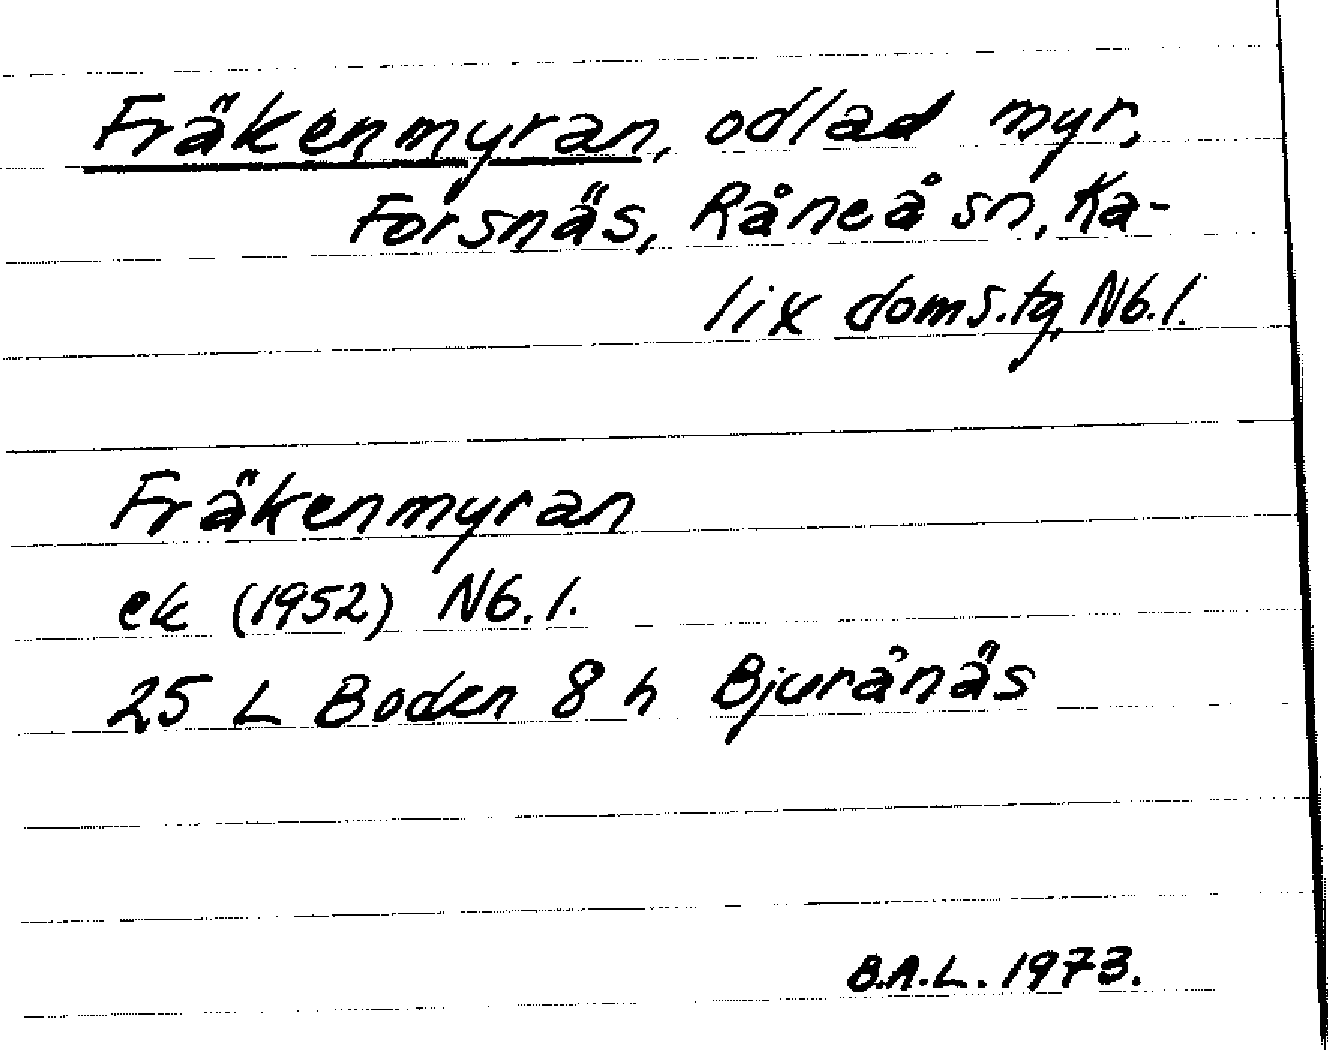 Fräkenmyran, odlad myr,
Forsnäs, Råneå sn, Ka-
lix doms.tg, Nb.l.
Fräkenmyran
ek (1952) Nb.l.
25 L Boden 8 h Bjurånäs
B.A.L. 1973.